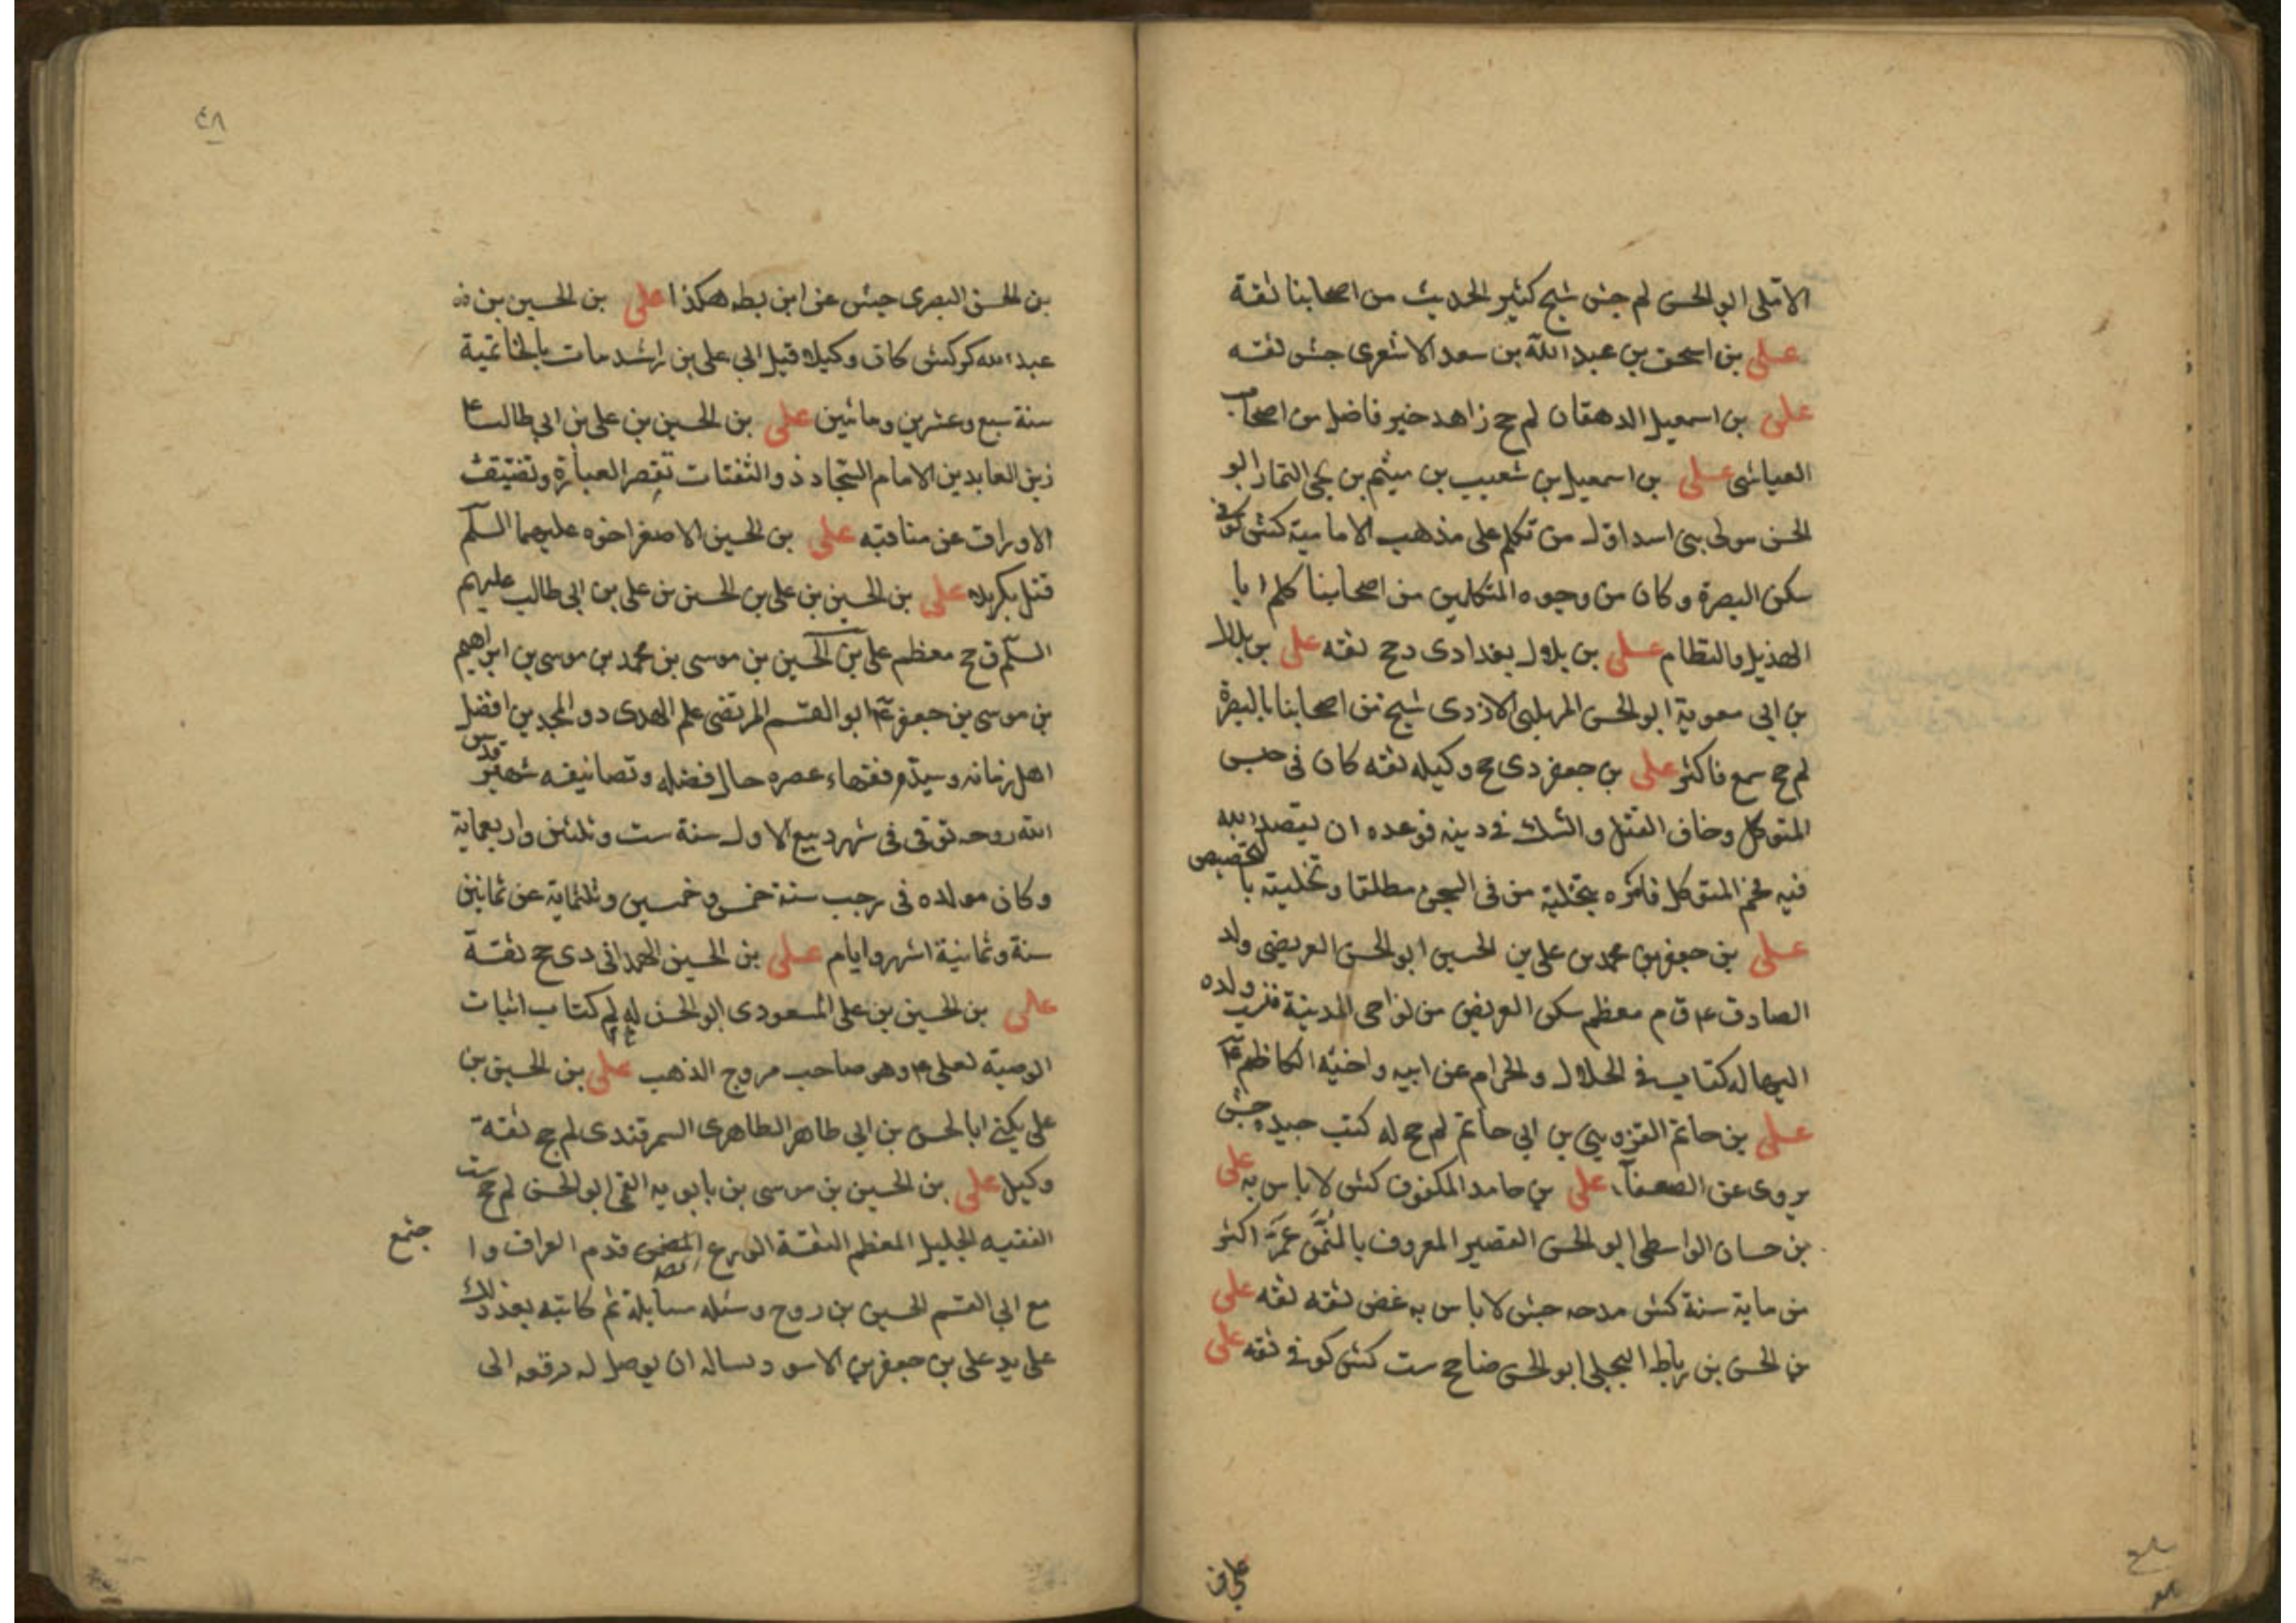 الاملى ابو الحسن لم جش شيخ كثير الحديث من اصحابنا ثقة
على بن اسحق بن عبد الله بن سعد الاشعرى جش ثقه
على بن اسمعيل الدهقان لم جخ زاهد خير فاضل من اصحاب
العياشى على بن اسمعيل بن شعيب بن ميثم بن يحيى التمار ابو
الحسن مولى بنى اسد اول من تكلم على مذهب الامامية كش كوفى
سكن البصرة وكان من وجوه المتكلمين من اصحابنا كلم ابا
الهذيل والنظام على بن بلال بغدادى دجخ ثقه على بن بلال
بن ابى معوية ابو الحسن المهلبى الازدى شيخ من اصحابنا بالبصرة
لم جخ سمع فاكثر على بن جعفر دى جخ وكيله ثقه كان فى حبس
المتوكل وخاف القتل والشك فى دينه فوعده ان يقصد الله
فيه فحم المتوكل فامره بتخلية من فى السجن مطلقا وتخليته بالتخصيص
على بن جعفر بن محمد بن على بن الحسين ابو الحسن العريضى ولد
الصادق ع ق م معظم سكن العريض من نواحى المدينة فنسب ولده
اليها له كتاب فى الحلال والحرام عن ابيه واخيه الكاظم ع
على بن حاتم القزوينى بن ابى حاتم لم جخ له كتب جيدة جش
يروى عن الضعفآء على بن حامد المكفوف كش لا باس به على
بن حسان الواسطى ابو الحسن القصير المعروف بالمنمس عمّر اكثر
من ماية سنة كش مدحه جش لا باس به غض ثقه ثقه على
بن الحسن بن رباط البجلى ابو الحسن ضا جخ ست كش كوفى ثقه على
على بن
٤٨
بن الحسن البصرى جش عن ابن بطه هكذا على بن الحسين بن
عبد الله كر كش كان وكيلا قبل ابى على بن راشد مات بالخاتمية
سنة سبع وعشرين ومائتين على بن الحسين بن على بن ابى طالب ع
زين العابدين الامام السجاد ذو الثفنات تقصر العبارة وتضيق
الاوراق عن مناقبه على بن الحسين الاصغر اخوه عليهما السلم
قتل بكربلاء على بن الحسين بن على بن الحسن بن على بن ابى طالب عليهم
السلم ق جخ معظم على بن الحسين بن موسى بن محمد بن موسى بن ابراهيم
بن موسى بن جعفر ع ابو القسم المرتضى علم الهدى ذو المجدين افضل
اهل زمانه وسيد فقهاء عصره حال فضله وتصانيفه شهير قدس
الله روحه توفى فى شهر ربيع الاول سنة ست وثلثين واربعماية
وكان مولده فى رجب سنة خمس وخمسين وثلثماية عن ثمانين
سنة وثمانية اشهر وايام على بن الحسين الهمدانى دى جخ ثقة
على بن الحسين بن على المسعودى ابو الحسن لم له كتاب اثبات
الوصية لعلى ع وهو صاحب مروج الذهب على بن الحسين بن
على يكنى ابا الحسن بن ابى طاهر الطاهرى السمرقندى لم جخ ثقة
وكيل على بن الحسين بن موسى بن بابويه القمى ابو الحسن لم جخ ست
الفقيه الجليل المعظم الثقة الورع قدم العراق واجتمع
مع ابى القسم الحسين بن روح وسئله مسايلة ثم كاتبه بعد ذلك
على يد على بن جعفر بن الاسود يساله ان يوصل له رقعه الى